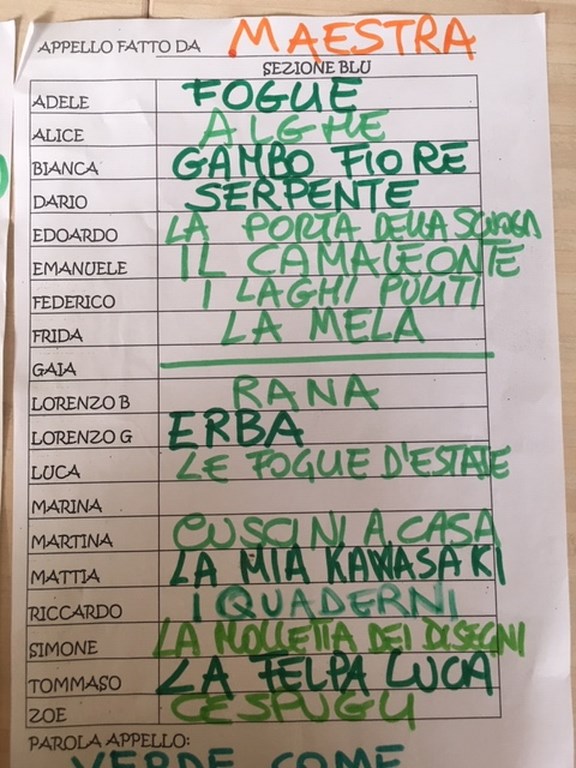 APPELLO FATTO DA MAESTRA
SEZIONE BLU
ADELE FOGLIE
ALICE ALGHE
BIANCA GAMBO FIORE
DARIO SERPENTE
EDOARDO LA PORTA DELLA SCUOLA
EMANUELE IL CAMALEONTE
FEDERICO I LAGHI PULITI
FRIDA LA MELA
GAIA
LORENZO B RANA
LORENZO G ERBA
LUCA LE FOGLIE D'ESTATE
MARINA
MARTINA CUSCINI A CASA
MATTIA LA MIA KAWASAKI
RICCARDO I QUADERNI
SIMONE LA MOLLETTA DEI DISEGNI
TOMMASO LA FELPA LUCA
ZOE CESPUGLI
PAROLA APPELLO:
VERDE COME